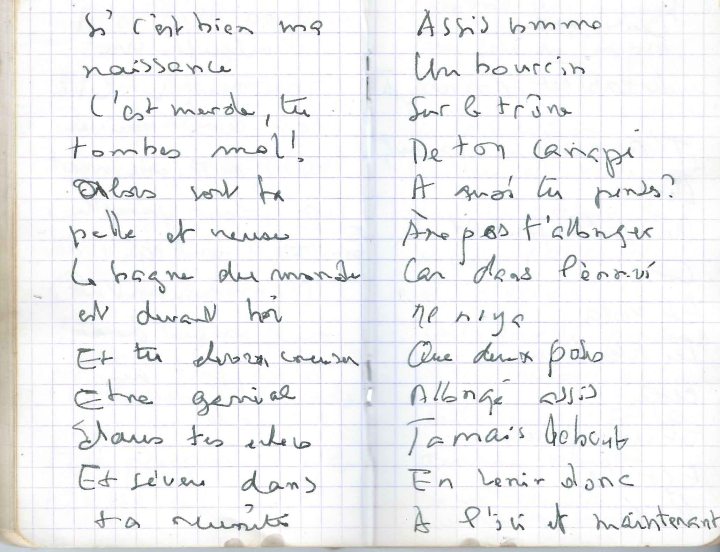 Si c'est bien ma
naissance
C'est merde, tu
tombes mal!
Alors sort ta
pelle et creuse
Le bagne du monde
est devant toi
Et tu devras creuser
Etre genial
Dans tes
Et sévère dans
ta
Assis comme
Un boursin
Sur le trône
De ton canapé
A quoi tu penses?
A ne pas t'allonger
Car dans l'ennui
ne n'y a
Que deux pos
Allongé assis
Jamais debout
En venir donc
A l'ici et maintenant